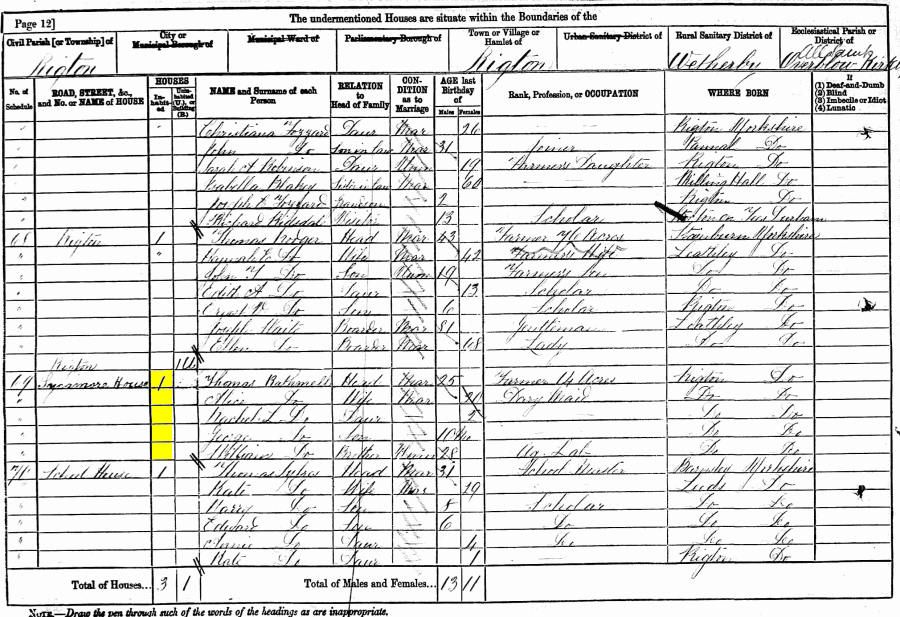 Page 12]
The undermentioned Houses are situate within the Boundaries of the
Civil Parish [or Township] of
Rigton
City or Municipal Borough of
Municipal Ward of
Parliamentary Borough of
Town or Village or Hamlet of
Rigton
Urban Sanitary District of
Rural Sanitary District of
Wetherby
Ecclesiastical Parish or District of
No. of Schedule
ROAD, STREET, &c., and No. or NAME of HOUSE
HOUSES
In-habit-ed
Unin-habited (U.), or Building (B.)
NAME and Surname of each Person
RELATION to Head of Family
CON-DITION as to Marriage
AGE last Birthday of
Males
Females
Rank, Profession, or OCCUPATION
WHERE BORN
If
(1) Deaf-and-Dumb
(2) Blind
(3) Imbecile or Idiot
(4) Lunatic
" Christiana Daur Mar 26 Rigton Yorkshire
" John Do Son in law Mar 31 Joiner Pannal Do
" Sarah A Robinson Daur 19 Farmer's Daughter Rigton Do
" Isabella Mar 60 Do
" Joseph Grandson 2 Rigton Do
" Richard 13 Scholar
68 Rigton 1 Thomas Head Mar 43 Farmer Acres Yorkshire
" Hannah Do Wife Mar 42 Farmer's Wife Leathley Do
" John Do Son 19 Farmer's Son Do Do
" Edith A Do Daur 13 Scholar Do Do
" Do Son 6 Scholar Rigton Do
" Joseph Waite Boarder Mar 81 Gentleman Leathley Do
" Ellen Do Boarder Mar 68 Lady Do Do
Rigton 1U
69 Sycamore House 1 Thomas Rathmell Head Mar 25 Farmer Acres Rigton Do
" Alice Do Wife Mar Dairy Maid Do Do
" Rachel Do Daur 2 Do Do
" George Do Son 10 Mo Do Do
" William Do Brother 28 Ag. Lab Do Do
70 School House 1 Thomas Sykes Head Mar 31 School Master Barnsley Yorkshire
" Kate Do Wife Mar 29 Leeds Do
" Harry Do Son 8 Scholar Do Do
" Edward Do Son 6 Do Do Do
" Annie Do Daur 4 Do Do Do
" Kate Do Daur 1 Rigton Do
Total of Houses... 3 1
Total of Males and Females... 13 11
NOTE.—Draw the pen through such of the words of the headings as are inappropriate.